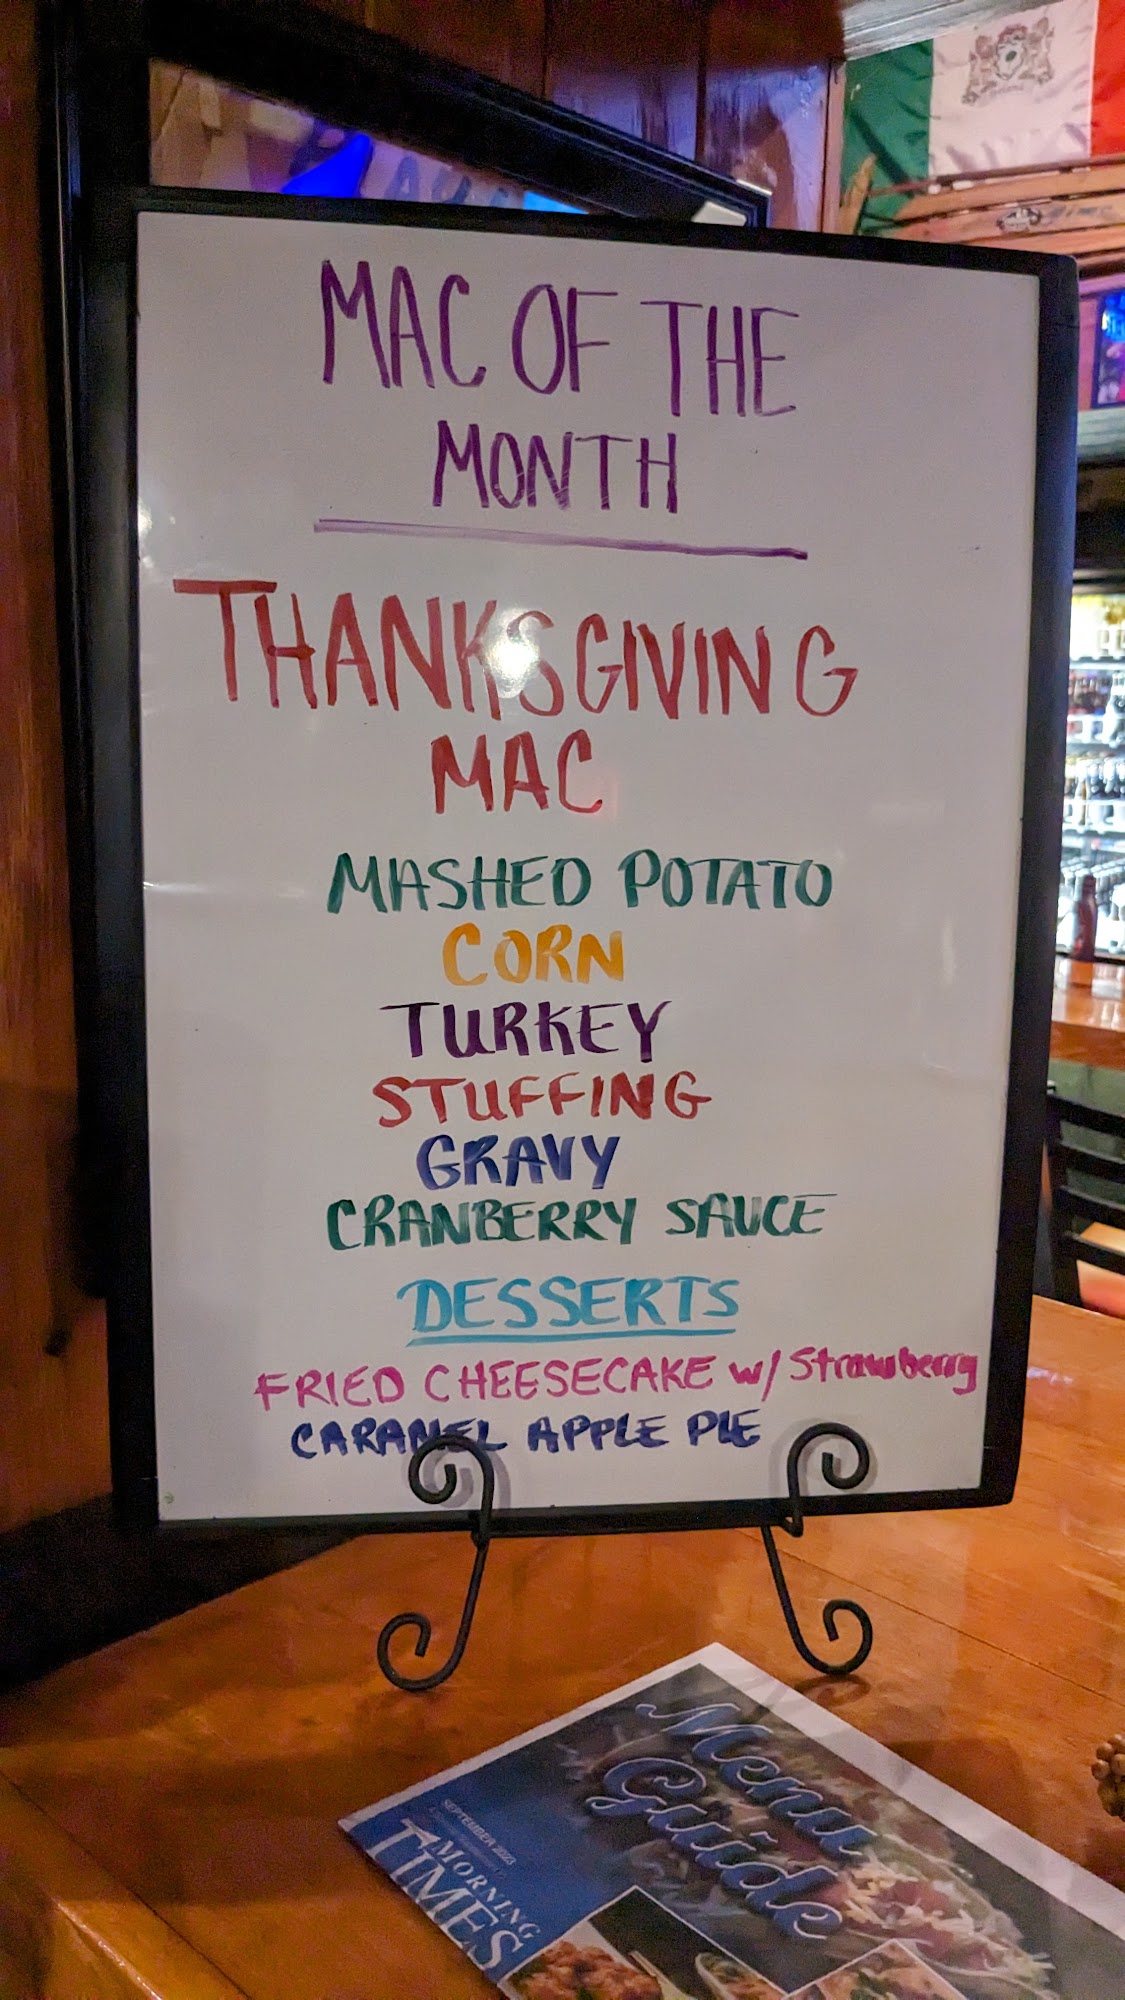 MAC OF THE
MONTH
THANKSGIVING
MAC
MASHED POTATO
CORN
TURKEY
STUFFING
GRAVY
CRANBERRY SAUCE
DESSERTS
FRIED CHEESECAKE w/ Strawberry
CARAMEL APPLE PIE
Menu
Guide
SEPTEMBER 2023
MORNING
TIMES